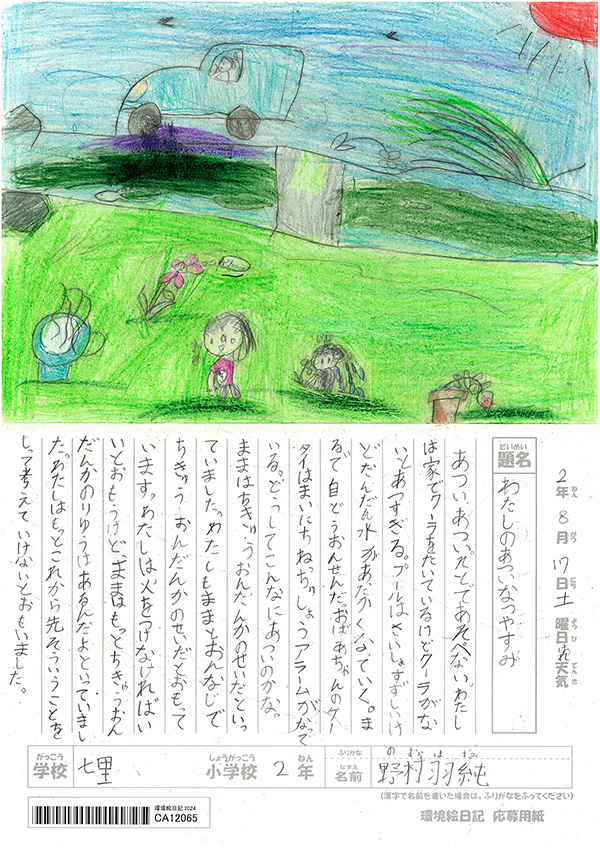 2年 8月 17日 土曜日 天気
ねん がつ にち ようび てんき
だいめい
題名
わたしのあついなつやすみ
あつい、あつい。そとであそべない。わたし
は家でクーラをたいているけどクーラがな
いとあつすぎる。プールはさいしょすずしいけ
どだんだん水があたたかくなっていく。ま
るで自どうおんせんだ。おばあちゃんのケー
タイはまいにちねっちゅしょうアラームがなって
いる。どうしてこんなにあついのかな。
ままはちきゅうおんだんかのせいだといっ
ていました。わたしもままとおんなじで
ちきゅうおんだんかのせいだとおもって
います。わたしは火をつけなければい
いとおもうけど、ままはもっとちきゅうおん
だんかのりゆうはあるんだよといっていまし
た。わたしはもっとこれから先そういうことを
しって考えていけないとおもいました。
がっこう
学校
七里
しょうがっこう
小学校
2
ねん
年
ふりがな
のむら はすみ
なまえ
名前
野村羽純
(漢字で名前を書いた場合は、ふりがなをふってください)
環境絵日記 2024
CA12065
環境絵日記 応募用紙